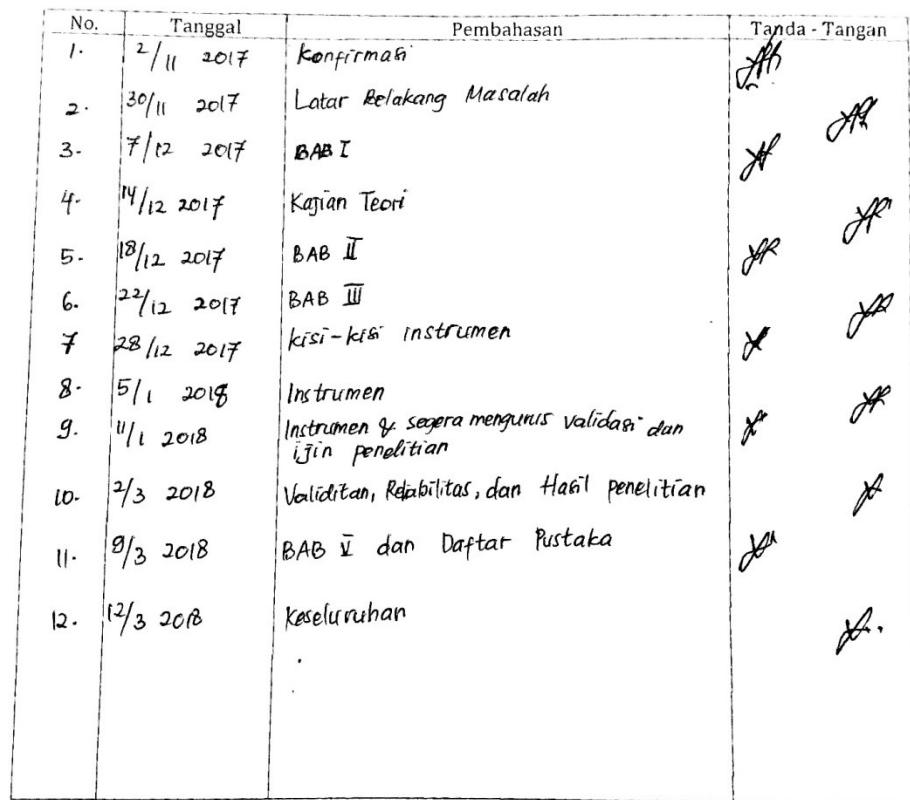 No. Tanggal Pembahasan Tanda - Tangan
1. 2/11 2017 Konfirmasi
2. 30/11 2017 Latar Belakang Masalah
3. 7/12 2017 BAB I
4. 14/12 2017 Kajian Teori
5. 18/12 2017 BAB II
6. 22/12 2017 BAB III
7 28/12 2017 kisi-kisi instrumen
8. 5/1 2018 Instrumen
9. 11/1 2018 Instrumen & segera mengurus validasi dan
ijin penelitian
10. 2/3 2018 Validitan, Reliabilitas, dan Hasil penelitian
11. 9/3 2018 BAB V dan Daftar Pustaka
12. 12/3 2018 Keseluruhan